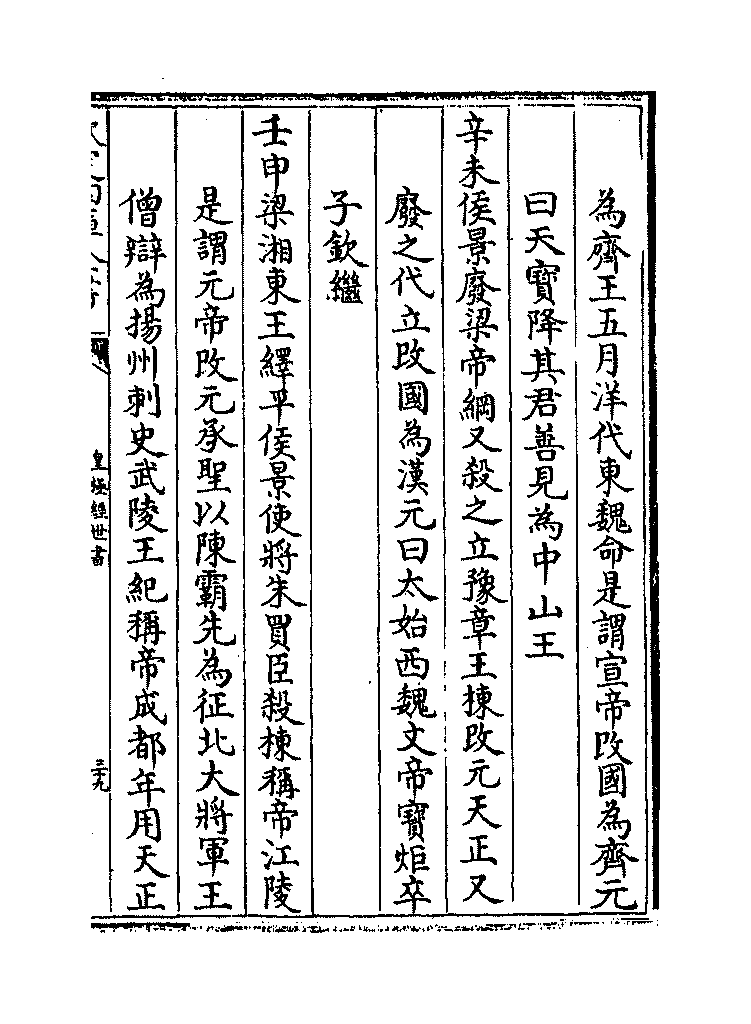 為齊王五月洋代東魏命是謂宣帝改國為齊元
曰天寶降其君善見為中山王
辛未侯景廢梁帝綱又殺之立豫章王棟改元天正又
廢之代立改國為漢元曰太始西魏文帝寶炬卒
子欽繼
壬申梁湘東王繹平侯景使將朱買臣殺棟稱帝江陵
是謂元帝改元承聖以陳霸先為征北大將軍王
僧辯為揚州刺史武陵王紀稱帝成都年用天正
皇極經世書
三十九